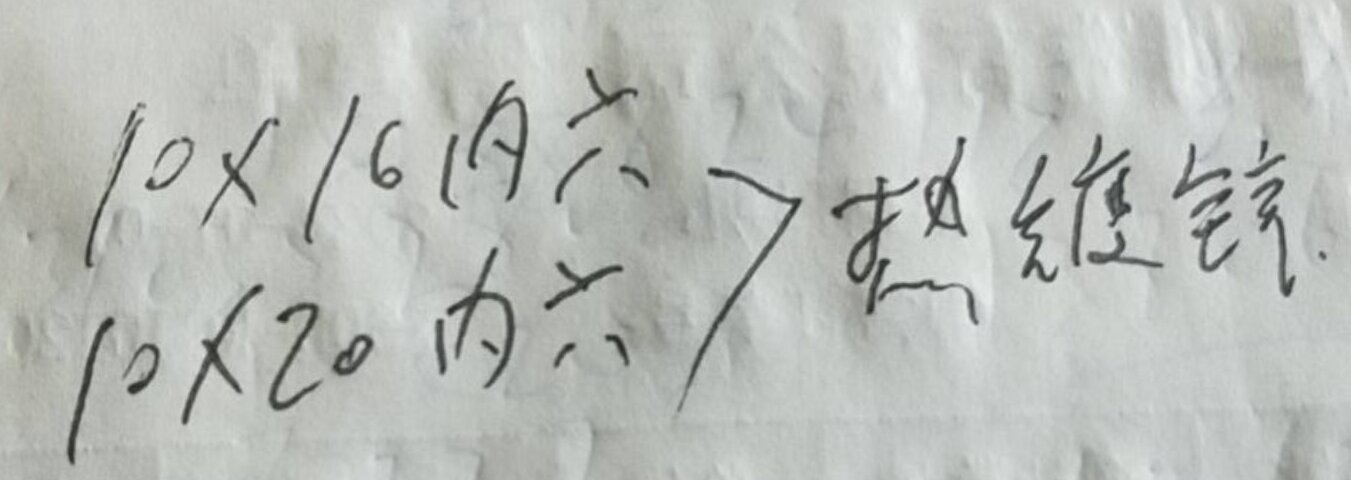 10×16内六
10×20内六
热镀锌.